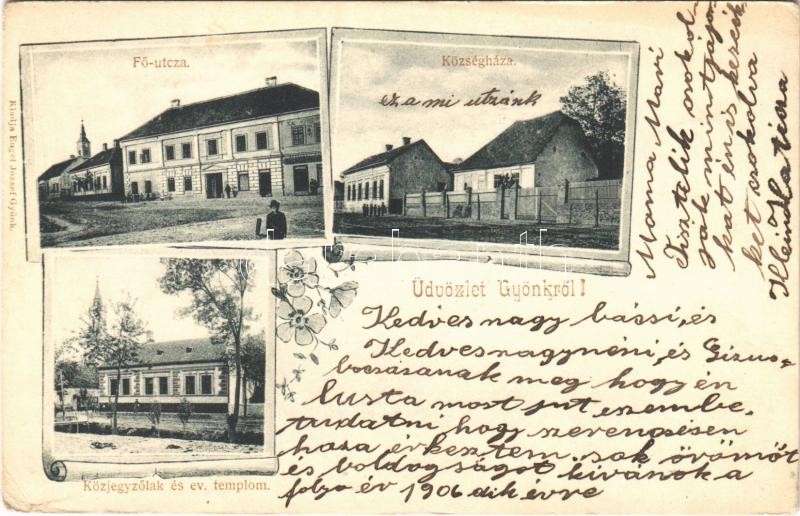 Fő-utcza.
Községháza.
ez a mi utzánk
Kiadja Engel József Gyönk.
Üdvözlet Gyönkről!
Közjegyzőlak és ev. templom.
Kedves nagy bácsi, és
Kedvesnagynéni, és Gizus-
bocsásanak meg hogy én
lusta most jut eszembe
tudatni hogy szerencsésen
haza érkeztem, sok örömöt
és boldogságot kivánok a
folyo év 1906 dik évre
Mama Mari
Tisztelik csokol
ják mint
kat én is kezeik
ket csokolva
Katicza